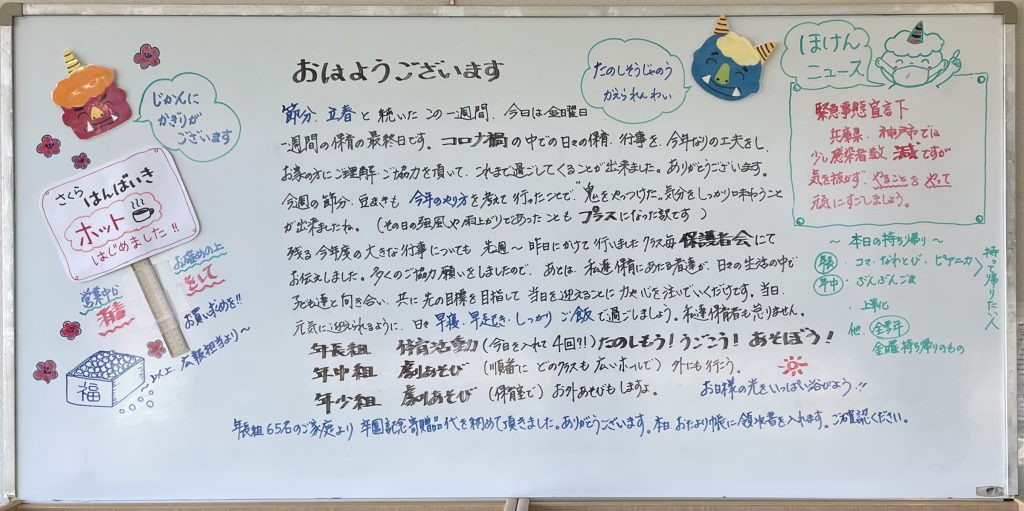 おはようございます
節分、立春と続いたこの一週間、今日は金曜日
一週間の保育の最終日です。コロナ禍の中での日々の保育、行事を、今年なりの工夫をし、
お家の方にご理解・ご協力を頂いて、これまで過ごしてくることが出来ました。ありがとうございます。
今週の節分、豆まきも 今年のやり方を考えて行ったつもりで“鬼をやっつけた”気分をしっかり味わうこと
が出来ましたね。(その日の強風や雨上がりであったことも プラスになった訳です)
残る今年度の大きな行事についても 先週～昨日にかけて行いましたクラス毎 保護者会にて
お伝えしました。多くのご協力願いをしましたので、あとは、私達保育にあたる者達が、日々の生活の中で
子ども達と向き合い、共に先の目標を目指して 当日を迎えることに力や心を注いでいくだけです。当日、
元気に迎えられるように、日々 早寝・早起き・しっかり ご飯で過ごしましょう。私達保育者も怠りません。
年長組 体育活動(今日を入れて4回?!)たのしもう!うごこう! あそぼう!
年中組 劇あそび(順番に どのクラスも広いホールで) 外にも行こう。
年少組 劇あそび(保育室で) お外あそびもしますよ。
お日様の光をいっぱい浴びよう!!
年長組65名のご家庭より 卒園記念寄贈品代を納めて頂きました。ありがとうございます。本日 おたより帳に領収書を入れます。ご確認ください。
じかんに
かぎりが
ございます
さくら はんばいき
ホット
はじめました!!
お薦めの上
営業中が
消毒
をして
お買い求めを!!
～以上、広報担当より～
福
たのしそうじゃのう
かえられんわい
ほけん
ニュース
緊急事態宣言下
兵庫県、神戸市では
少し感染者数 減ですが
気を抜かず、やることをやって
元気にすごしましょう。
～ 本日の持ち帰り ～
年長 コマ・なわとび・ピアニカ
年中 ぶんぶんごま
持って帰りたい人
・上靴
他、全学年
金曜持ち帰りのもの